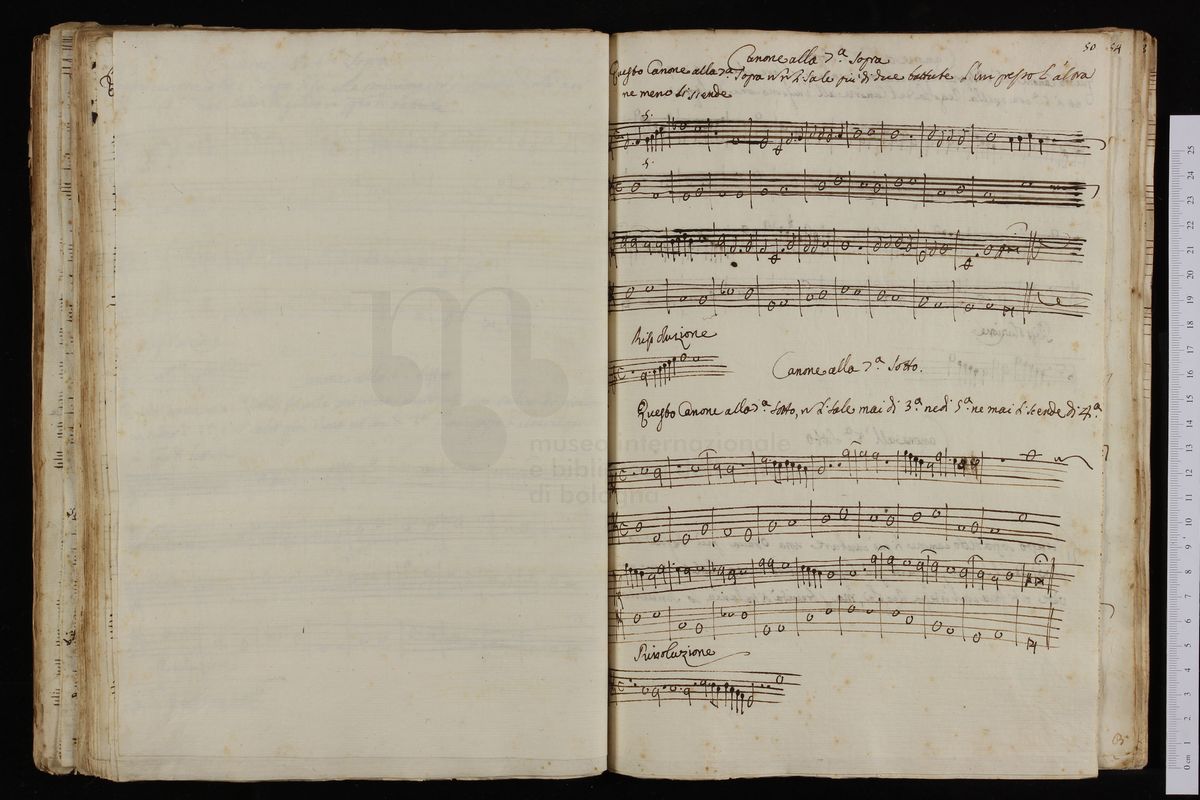 50
Canone alla 7ª Sopra
Questo Canone alla 7ª Sopra non si Sale più di due battute l'un presso l'altra
ne meno si scende
5.
5.
Rissoluzione
Canone alla 7ª Sotto.
Questo Canone alla 7ª Sotto, non si Sale mai di 3ª ne di 5ª ne mai si scende di 4ª
Rissoluzione
museo internazionale
e bibli
di bologna
0 cm 1 2 3 4 5 6 7 8 9 10 11 12 13 14 15 16 17 18 19 20 21 22 23 24 25